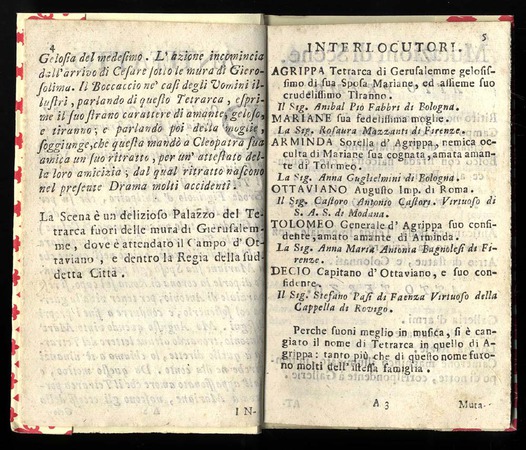 4
Gelosia del medesimo. L'azione incomincia
dall'arrivo di Cesare sotto le mura di Giero-
solima. Il Boccaccio ne' casi degli Uomini il-
lustri, parlando di questo Tetrarca, espri-
me il suo strano carattere di amante, geloso,
e tiranno; e parlando poi della moglie,
soggiunge, che questa mandò a Cleopatra sua
amica un suo ritratto, per un' attestato del-
la loro amicizia; dal qual ritratto nascono
nel presente Drama molti accidenti.
La Scena è un delizioso Palazzo del Te-
trarca fuori delle mura di Gierusalem-
me, dove è attendato il Campo d'Ot-
taviano, e dentro la Regia della sud-
detta Città.
I N-
5
INTERLOCUTORI.
AGRIPPA Tetrarca di Gerusalemme gelosis-
simo di sua Sposa Mariane, ed assieme suo
crudelissimo Tiranno.
Il Sig. Anibal Pio Fabbri di Bologna.
MARIANE sua fedelissima moglie.
La Sig. Rosaura Mazzanti di Firenze.
ARMINDA Sorella d'Agrippa, nemica oc-
culta di Mariane sua cognata, amata aman-
te di Tolomeo.
La Sig. Anna Guglielmini di Bologna.
OTTAVIANO Augusto Imp. di Roma.
Il Sig. Castoro Antonio Castori. Virtuoso di
S. A. S. di Modana.
TOLOMEO Generale d'Agrippa suo confi-
dente, amato amante di Arminda.
La Sig. Anna Maria Antonia Bagnolesi di Fi-
renze.
DECIO Capitano d'Ottaviano, e suo con-
fidente.
Il Sig. Stefano Pasi di Faenza Virtuoso della
Cappella di Rovigo.
Perche suoni meglio in musica, si è can-
giato il nome di Tetrarca in quello di A-
grippa: tanto più, che di questo nome furo-
no molti dell'istessa famiglia.
A 3
Muta-